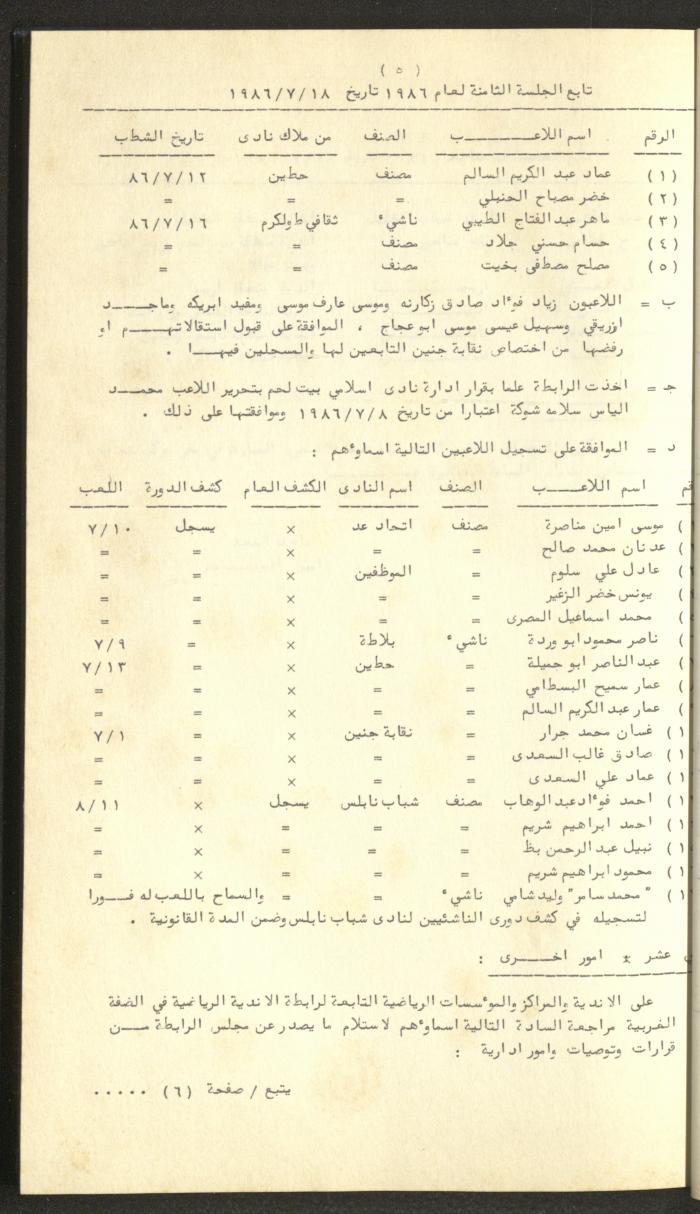 ( ٥ )
تابع الجلسة الثامنة لعام ١٩٨٦ تاريخ ١٩٨٦/٧/١٨
الرقم اسم اللاعـــــب الصنف من ملاك نادى تاريخ الشطب
(١) عماد عبد الكريم السالم مصنف حطين ٨٦/٧/١٢
(٢) خضر مصباح الحنبلي = = =
(٣) ماهر عبد الفتاح الطيبي ناشيء ثقافي طولكرم ٨٦/٧/١٦
(٤) حسام حسني جلاد مصنف = =
(٥) مصلح مصطفى بخيت مصنف = =
ب = اللاعبون زياد فوءاد صادق زكارنه وموسى عارف موسى ومفيد ابريكه وماجــــد
اوزيقي وسهيل عيسى موسى ابو عجاج ، الموافقة على قبول استقالاتهــــم او
رفضها من اختصاص نقابة جنين التابعين لها والمسجلين فيهــــا .
جـ = اخذت الرابطة علما بقرار ادارة نادى اسلامي بيت لحم بتحرير اللاعب محمــــد
الياس سلامه شوكة اعتبارا من تاريخ ١٩٨٦/٧/٨ وموافقتها على ذلك .
د = الموافقة على تسجيل اللاعبين التالية اسماوءهم :
قم اسم اللاعــــب الصنف اسم النادى الكشف العام كشف الدورة اللعب
) موسى امين مناصرة مصنف اتحاد عد × يسجل ٧/١٠
) عدنان محمد صالح = = × = =
) عادل علي سلوم = الموظفين × = =
) يونس خضر الزغير = = × = =
) محمد اسماعيل المصرى = = × = =
) ناصر محمود ابو وردة ناشيء بلاطة × = ٧/٩
) عبد الناصر ابو جميلة = حطين × = ٧/١٣
) عمار سميح البسطامي = = × = =
) عمار عبد الكريم السالم = = × = =
١) غسان محمد جرار = نقابة جنين × = ٧/١
١) صادق غالب السعدى = = × = =
١) عماد علي السعدى = = × = =
١) احمد فوءاد عبد الوهاب مصنف شباب نابلس يسجل × ٨/١١
١) احمد ابراهيم شريم = = = × =
١) نبيل عبد الرحمن بظ = = = × =
١) محمود ابراهيم شريم = = = × =
١) "محمد سامر" وليد شامي ناشيء = = والسماح باللعب له فــــورا
لتسجيله في كشف دورى الناشئيين لنادى شباب نابلس وضمن المدة القانونية .
ي عشر * امور اخــــرى :
على الاندية والمراكز والموءسسات الرياضية التابعة لرابطة الاندية الرياضية في الضفة
الغربية مراجعة السادة التالية اسماوءهم لاستلام ما يصدر عن مجلس الرابطة مــــن
قرارات وتوصيات وامور ادارية :
يتبع / صفحة (٦) .....